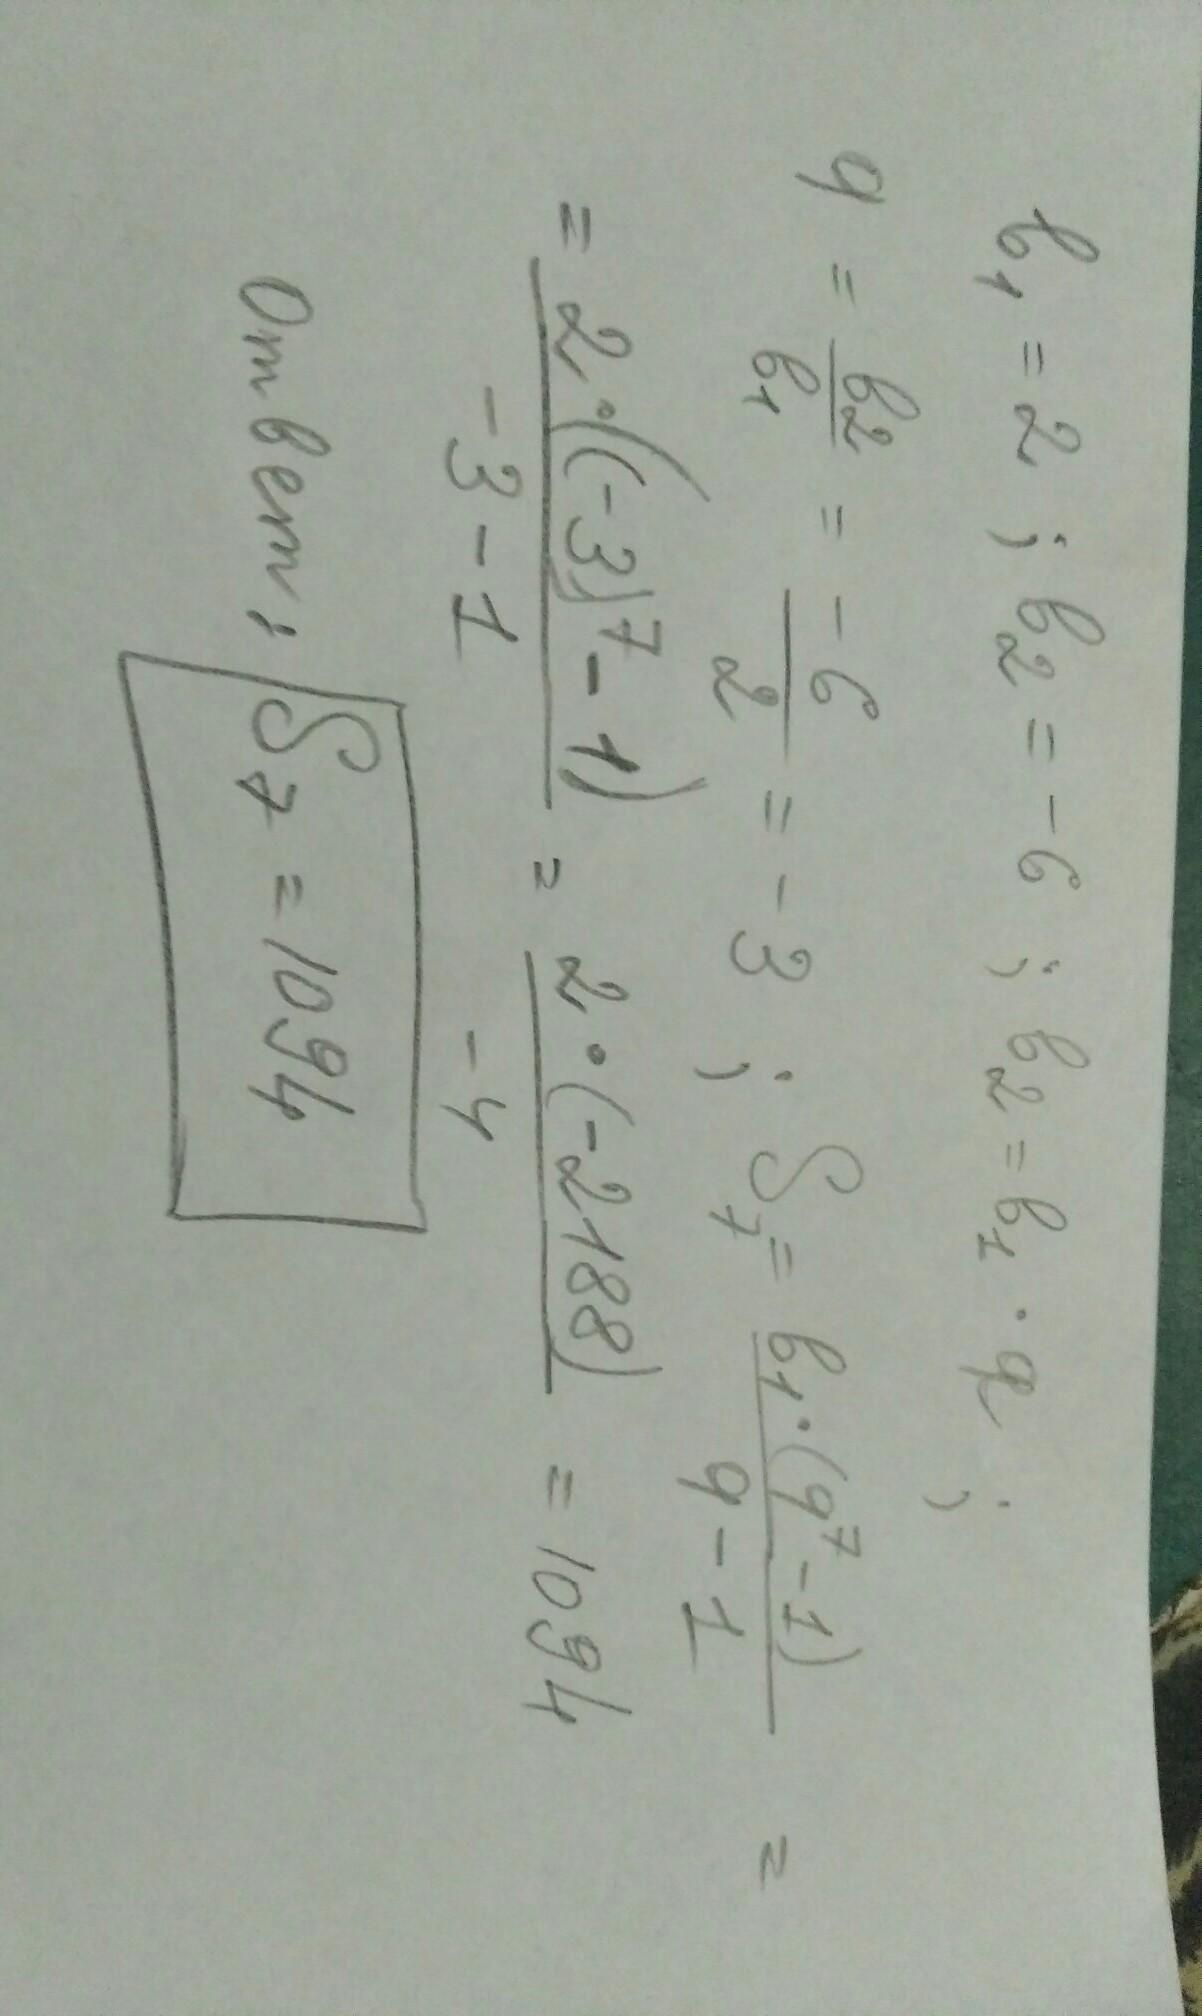 b₁ = 2 ; b₂ = -6 ; b₂ = b₁ · q ;
q = b₂/b₁ = -6/2 = -3 ; S₇ = b₁·(q⁷-1)/q-1 =
= 2·((-3)⁷-1)/-3-1 = 2·(-2188)/-4 = 1094
Ответ: S₇ = 1094